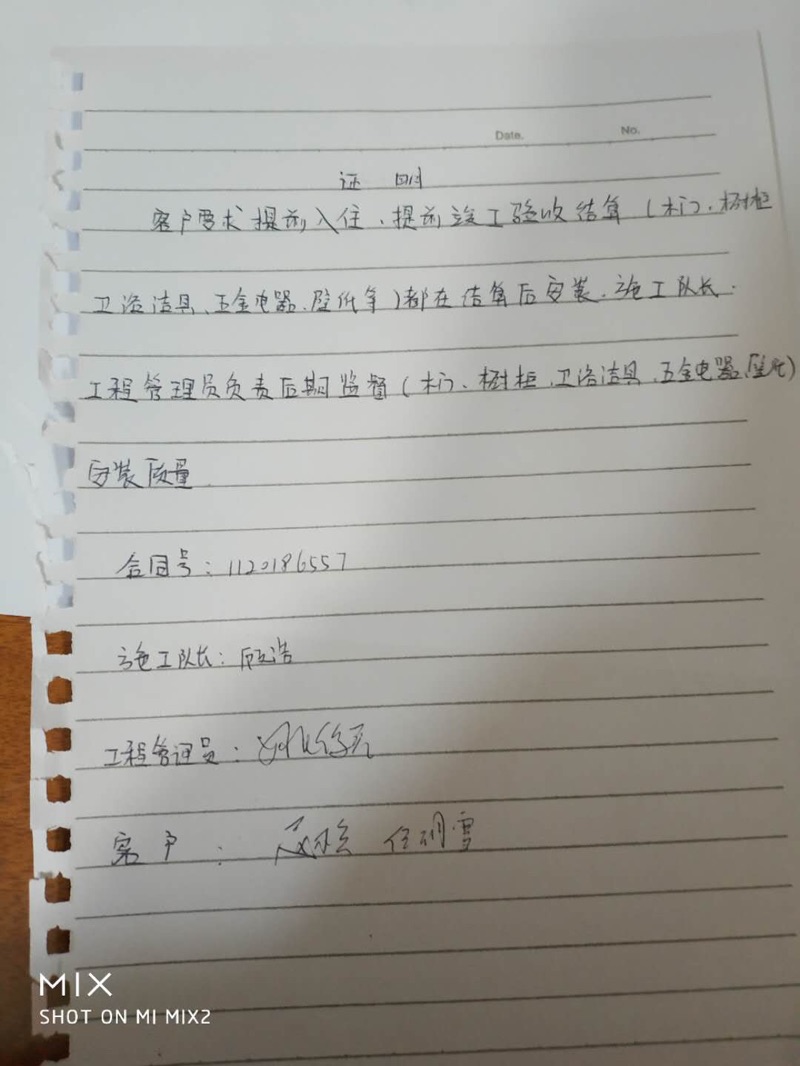 Date. No.
证 明
客户要求提前入住、提前竣工验收结算（木门、橱柜
卫浴洁具、五金电器、壁纸等）都在结算后安装、施工队长、
工程管理员负责后期监督（木门、橱柜、卫浴洁具、五金电器、壁纸）
安装质量
合同号：1120186557
施工队长：顾浩
工程管理员：
客户：
MIX
SHOT ON MI MIX2